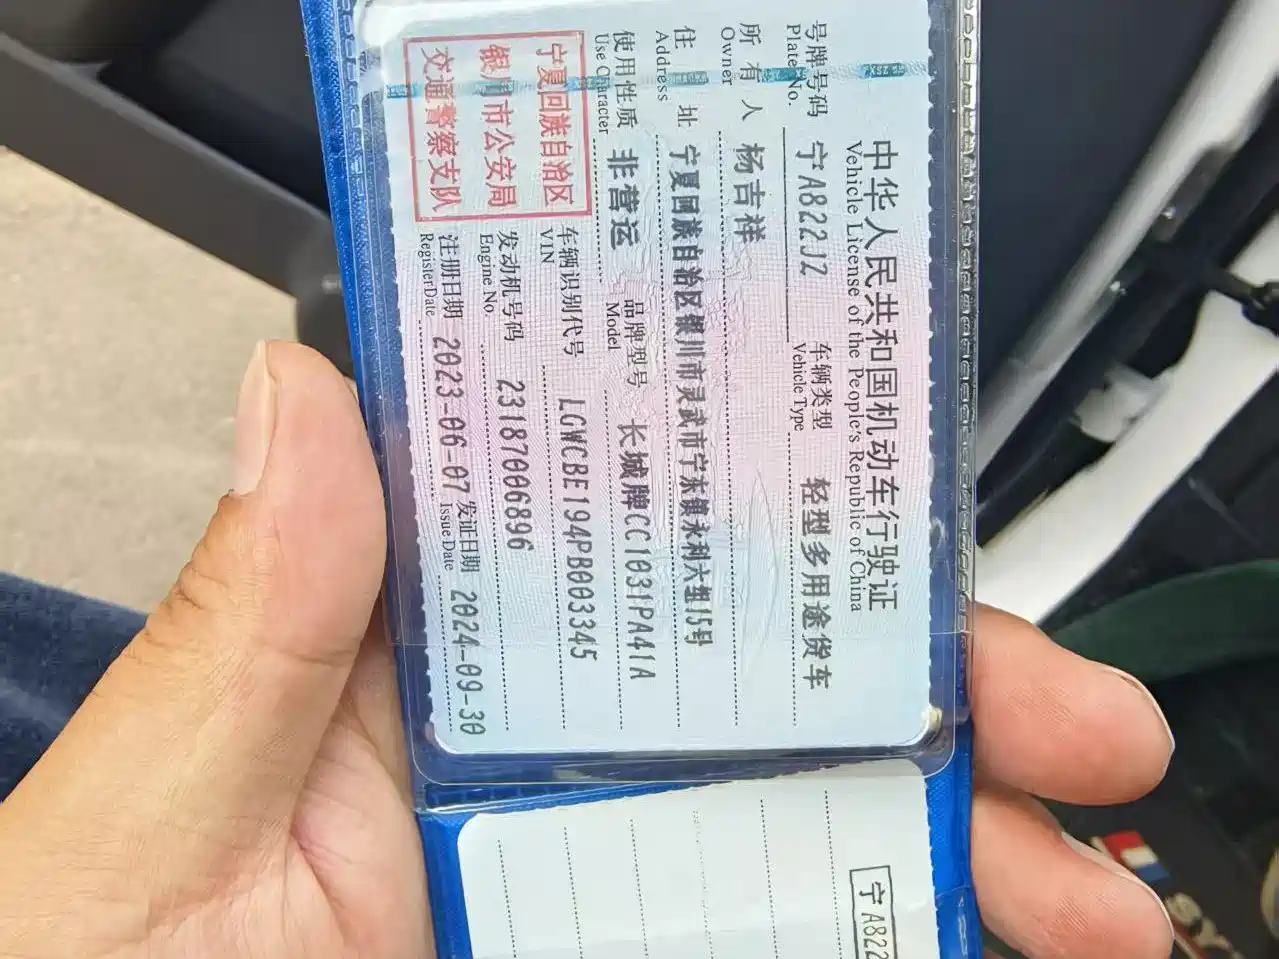 中华人民共和国机动车行驶证
Vehicle License of the People's Republic of China
号牌号码 宁A822J2 车辆类型 轻型多用途货车
Plate No. Vehicle Type
所有人 杨吉祥
Owner
住址 宁夏回族自治区银川市灵武市宁东镇永利六组15号
Address
使用性质 非营运 品牌型号 长城牌CC1031PA41A
Use Character Model
宁夏回族自治区
银川市公安局
交通警察支队
车辆识别代号 LGWCBE194PB003345
VIN
发动机号码 23187006896
Engine No.
注册日期 2023-06-07 发证日期 2024-09-30
Register Date Issue Date
宁A822